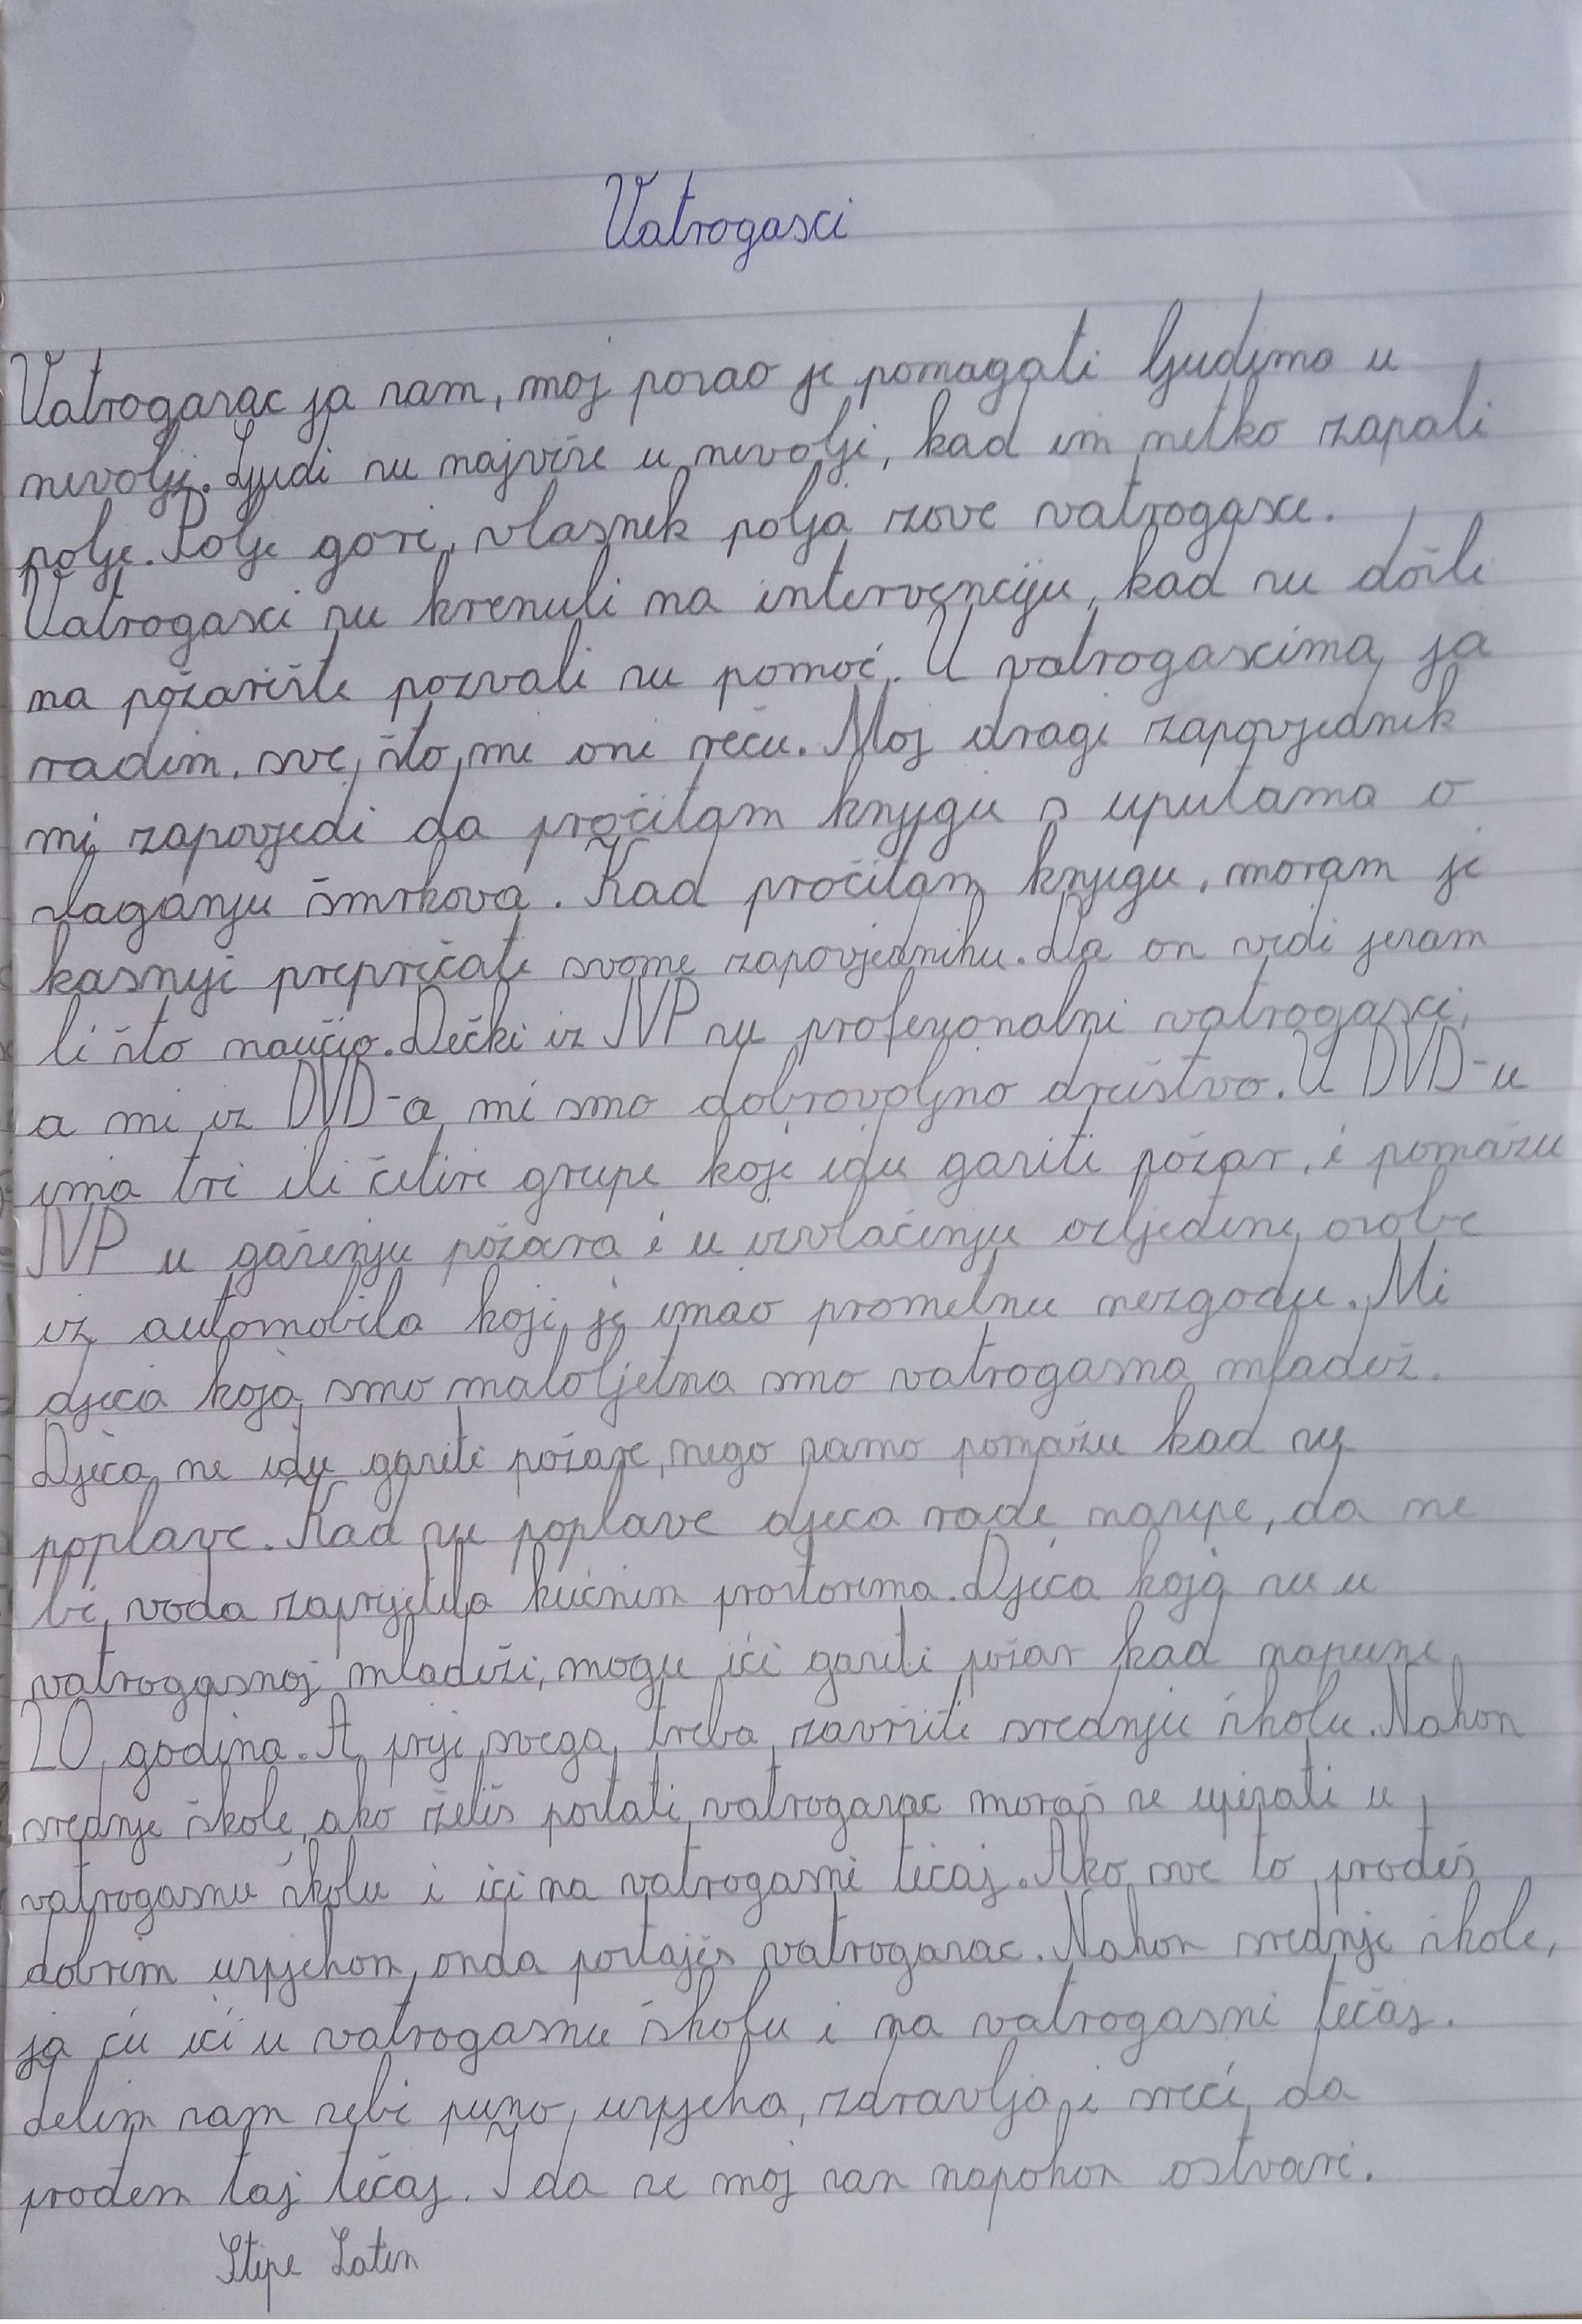 Vatrogasci
Vatrogasac ja sam, moj posao je pomagati ljudima u
nevolji. Ljudi su najviše u nevolji, kad im netko zapali
polje. Polje gori, vlasnik polja zove vatrogasce.
Vatrogasci su krenuli na intervenciju, kad su došli
na požarište pozvali su pomoć. U vatrogascima ja
radim, sve što mi oni reču. Moj dragi zapovjednik
mi zapovjedi da pročitam knjigu s uputama o
slaganju šmrkova. Kad pročitam knjigu, moram je
kasnije prepričati svome zapovjedniku. Da on vidi jesam
li što naučio. Dečki iz JVP su profesionalni vatrogasci,
a mi iz DVD-a mi smo dobrovoljno društvo. U DVD-u
ima tri ili četiri grupe koje idu gasiti požar, i pomažu
JVP u gašenju požara i u izvlačenju ozljeđene osobe
iz automobila koji je imao prometnu nezgodu. Mi
djeca koja smo maloljetna smo vatrogasna mladež.
Djeca ne idu gasiti požare, nego samo pomažu kad su
poplave. Kad su poplave djeca rade nasipe, da ne
bi voda zaprijetila kućnim prostorima. Djeca koja su u
vatrogasnoj mladeži, mogu ići gasiti požar kad napune
20 godina. A prije svega treba završiti srednju školu. Nakon
srednje škole, ako želiš postati vatrogasac moraš se upisati u
vatrogasnu školu i ići na vatrogasni tečaj. Ako sve to prođeš
dobrim uspjehom, onda postaješ vatrogasac. Nakon srednje škole,
ja ću ići u vatrogasnu školu i na vatrogasni tečaj.
želim sam sebi puno, uspjeha, zdravlja i sreći da
prođem taj tečaj. I da se moj san napokon ostvari.
Stipe Latin